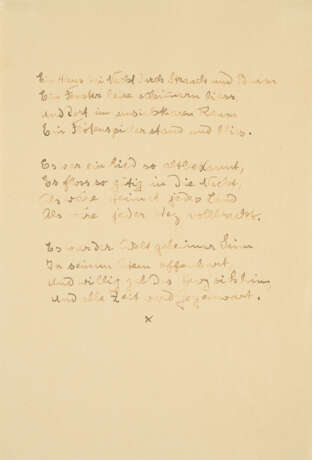 Ein Haus bei Nacht durch Strauch und Baum
Ein Fenster leise schimmern liess
und dort im unsichtbaren Raum
Ein Flötenspieler stand und blies.
Es war ein Lied so altbekannt,
Es floss so gütig in die Nacht,
Als wäre Heimat jedes Land
Als wäre jeder Weg vollbracht.
Es war der Welt geheimer Sinn
In seinem Atem offenbart
Und willig gab das Herz sich hin
und alle Zeit ward Gegenwart.